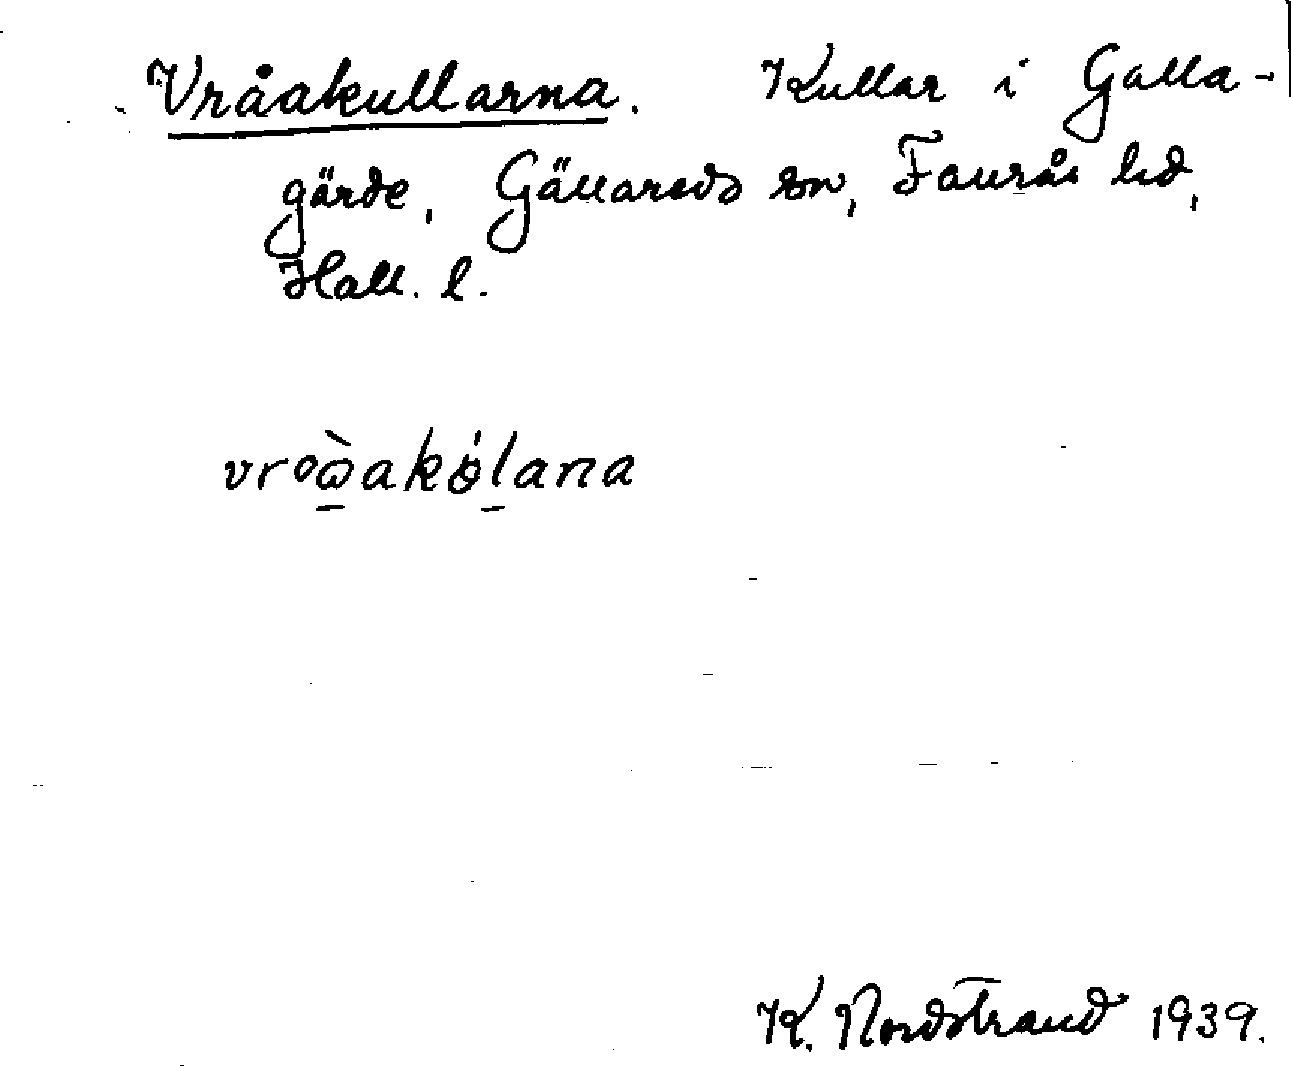 Vråakullarna. Kullar i Galla-
gärde, Gällareds sn, Faurås hd,
Hall. l.
vroὼ̲akǿl̲ana
K. Nordstrand 1939.